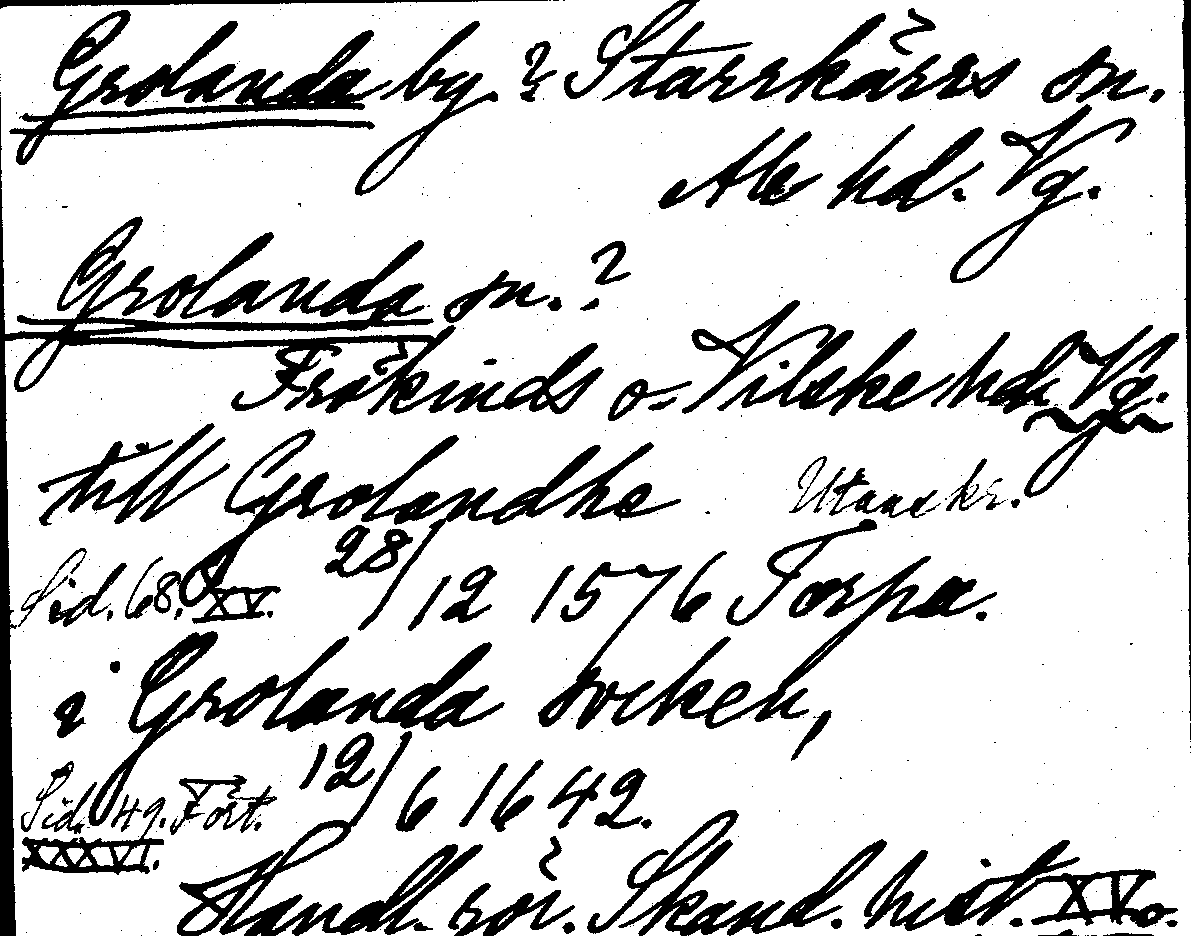 Grolanda by.? Starrkärrs sn.
Ale hd. Vg.
Grolanda sn.?
Frökinds o. Vilske hdr Vg.
till Grolandhe Utanskr.
Sid. 68. XV. 28/12 1576 Torpa.
i Grolanda socken,
Sid. 49. Fört. 12/6 1642.
XXXVI.
Handl. rör. Skand. hist. XV o.